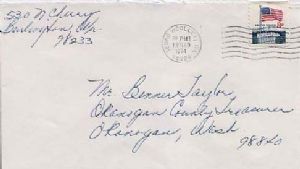 530 N Cherry
Burlington, Wa.
98233
PM
Mr. Benner Taylor,
Okanogan County Treasurer
Okanogan, Wash
98840